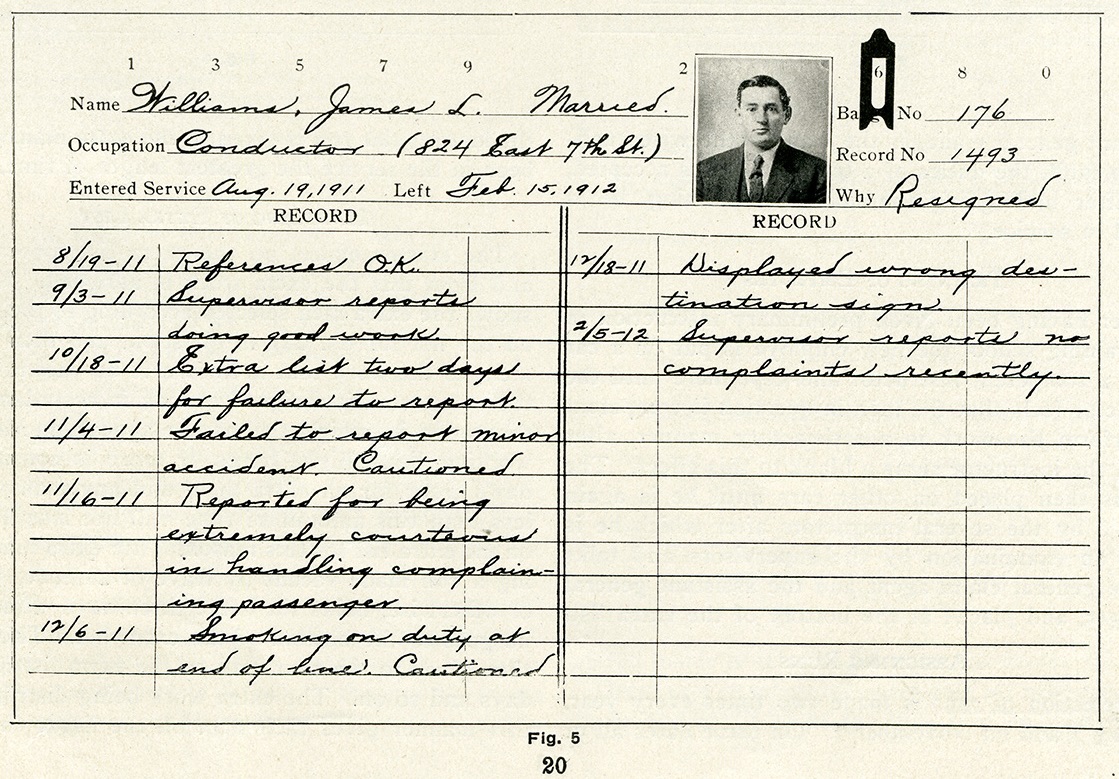 1 3 5 7 9 2 6 8 0
Name Williams, James L. Married. No 176
Occupation Conductor (824 East 7th St.) Record No 1493
Entered Service Aug. 19, 1911 Left Feb. 15, 1912 Why Resigned
RECORD
8/19-11 References O.K.
9/3-11 Supervisor reports
doing good work.
10/18-11 Extra list two days
for failure to report.
11/4-11 Failed to report minor
accident. Cautioned
11/16-11 Reported for being
extremely courteous
in handling complain-
ing passenger.
12/6-11 Smoking on duty at
end of line. Cautioned
RECORD
12/18-11 Displayed wrong des-
tination sign.
2/5-12 Supervisor reports no
complaints recently.
Fig. 5
20